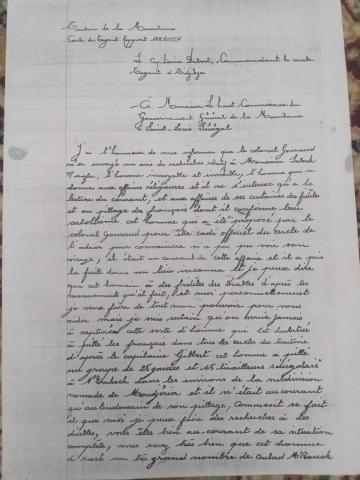 Territoire de la Mauritanie
Cercle du Tagant Rapport 138/CT/CF
Le Capitaine Dubost, Commandant le cercle
Tagant à Tidjikja
À Monsieur Le haut Commissaire du
Gouvernement Général de la Mauritanie
à Saint-Louis Sénégal
J'ai l'honneur de vous informer que le colonel Gouraud
m'a envoyé un avis de recherches à Monsieur
l'homme incroyable et invisible, l'homme qui se
donne aux affaires religieuses et il ne s'intéresse qu'à la
lecture du courant, et aux affaires de ses centaines de fidèles
et au pillage des français dont il confirme leur
catolisme, cet homme qui a été proposé par le
colonel Gouraud pour être cadi officiel du cercle de
l'adrar pour convaincre n'a pas pu voir son
visage, il était au courant de cette affaire et il a pris
la fuite dans un lieu inconnu et je peux dire
que cet humain a des fidèles des diables d'après les
mouvements qu'il fait, et moi personnellement
je veux faire de tout mon pouvoir pour vous
aider mais je suis certain qu'on arrive jamais
à capturer cette sorte d'homme qui est habitué
à pillé les français dans tous les cercles du territoire
d'après le capitaine Gilbert cet homme a pillé
un groupe de 25 gardes et 15 tirailleurs sénégalais
à dans les environs de la subdivision
nomade de Moudjéria et il n'était au courant
qu'au lendemain de son pillage, comment se fait
il que moi je peux faire des recherches à des
diables, vous être bien au courant de sa situation
complète, vous savez très bien que cet homme
a un très grand nombre de oulad M'Bareck